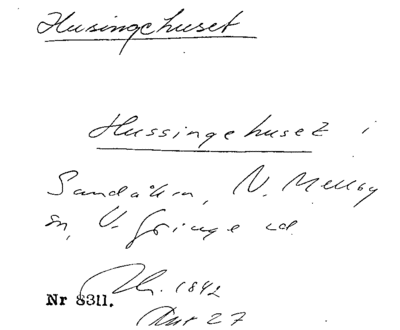 Husingehuset
Hussingehuset i
Sandåkra, N. Mellby
sn, V. Göinge hd.
Nr 8311.
1842
27